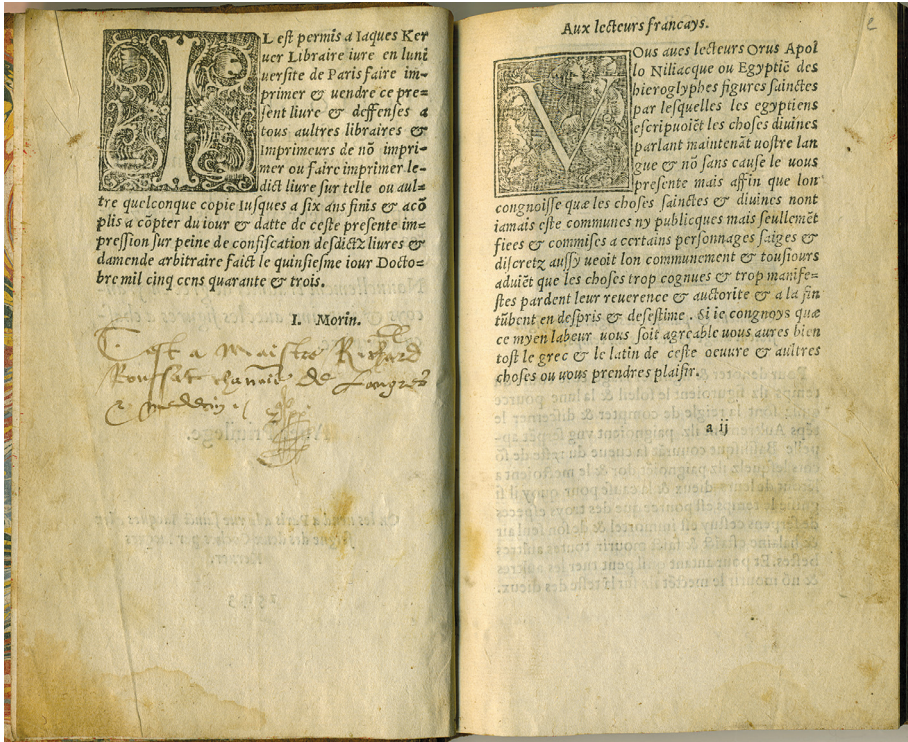 IL est permis a Iaques Ker
uer Libraire iure en luni
uersite de Paris faire im-
primer & uendre ce pre=
sent liure & deffenses a
tous aultres libraires &
Imprimeurs de nõ impri-
mer ou faire imprimer le-
dict liure sur telle ou aul=
tre quelconque copie Iusques a six ans finis & acõ
plis a cõpter du iour & datte de ceste presente im=
pression sur peine de confiscation desdictz liures &
damende arbitraire faict le quinsiesme iour Docto=
bre mil cinq cens quarante & trois.
I. Morin.
C'est a Maistre Richard
Roussat chanoine de Langres
& medecin
Aux lecteurs francays.
VOus aues lecteurs Orus Apol
lo Niliacque ou Egyptiẽ des
hieroglyphes figures sainctes
par lesquelles les egyptiens
escripuoiẽt les choses diuines
parlant maintenãt uostre lan
gue & nõ sans cause le uous
presente mais affin que lon
congnoisse quæ les choses sainctes & diuines nont
iamais este communes ny publicques mais seullemẽt
fiees & commises a certains personnages saiges &
discretz aussy ueoit lon communement & tousiours
aduiẽt que les choses trop cognues & trop manife=
stes pardent leur reuerence & auctorite & a la fin
tũbent en despris & desestime. Si ie congnoys quæ
ce myen labeur uous soit agreable uous aures bien
tost le grec & le latin de ceste oeuure & aultres
choses ou uous prendres plaisir.
a ij